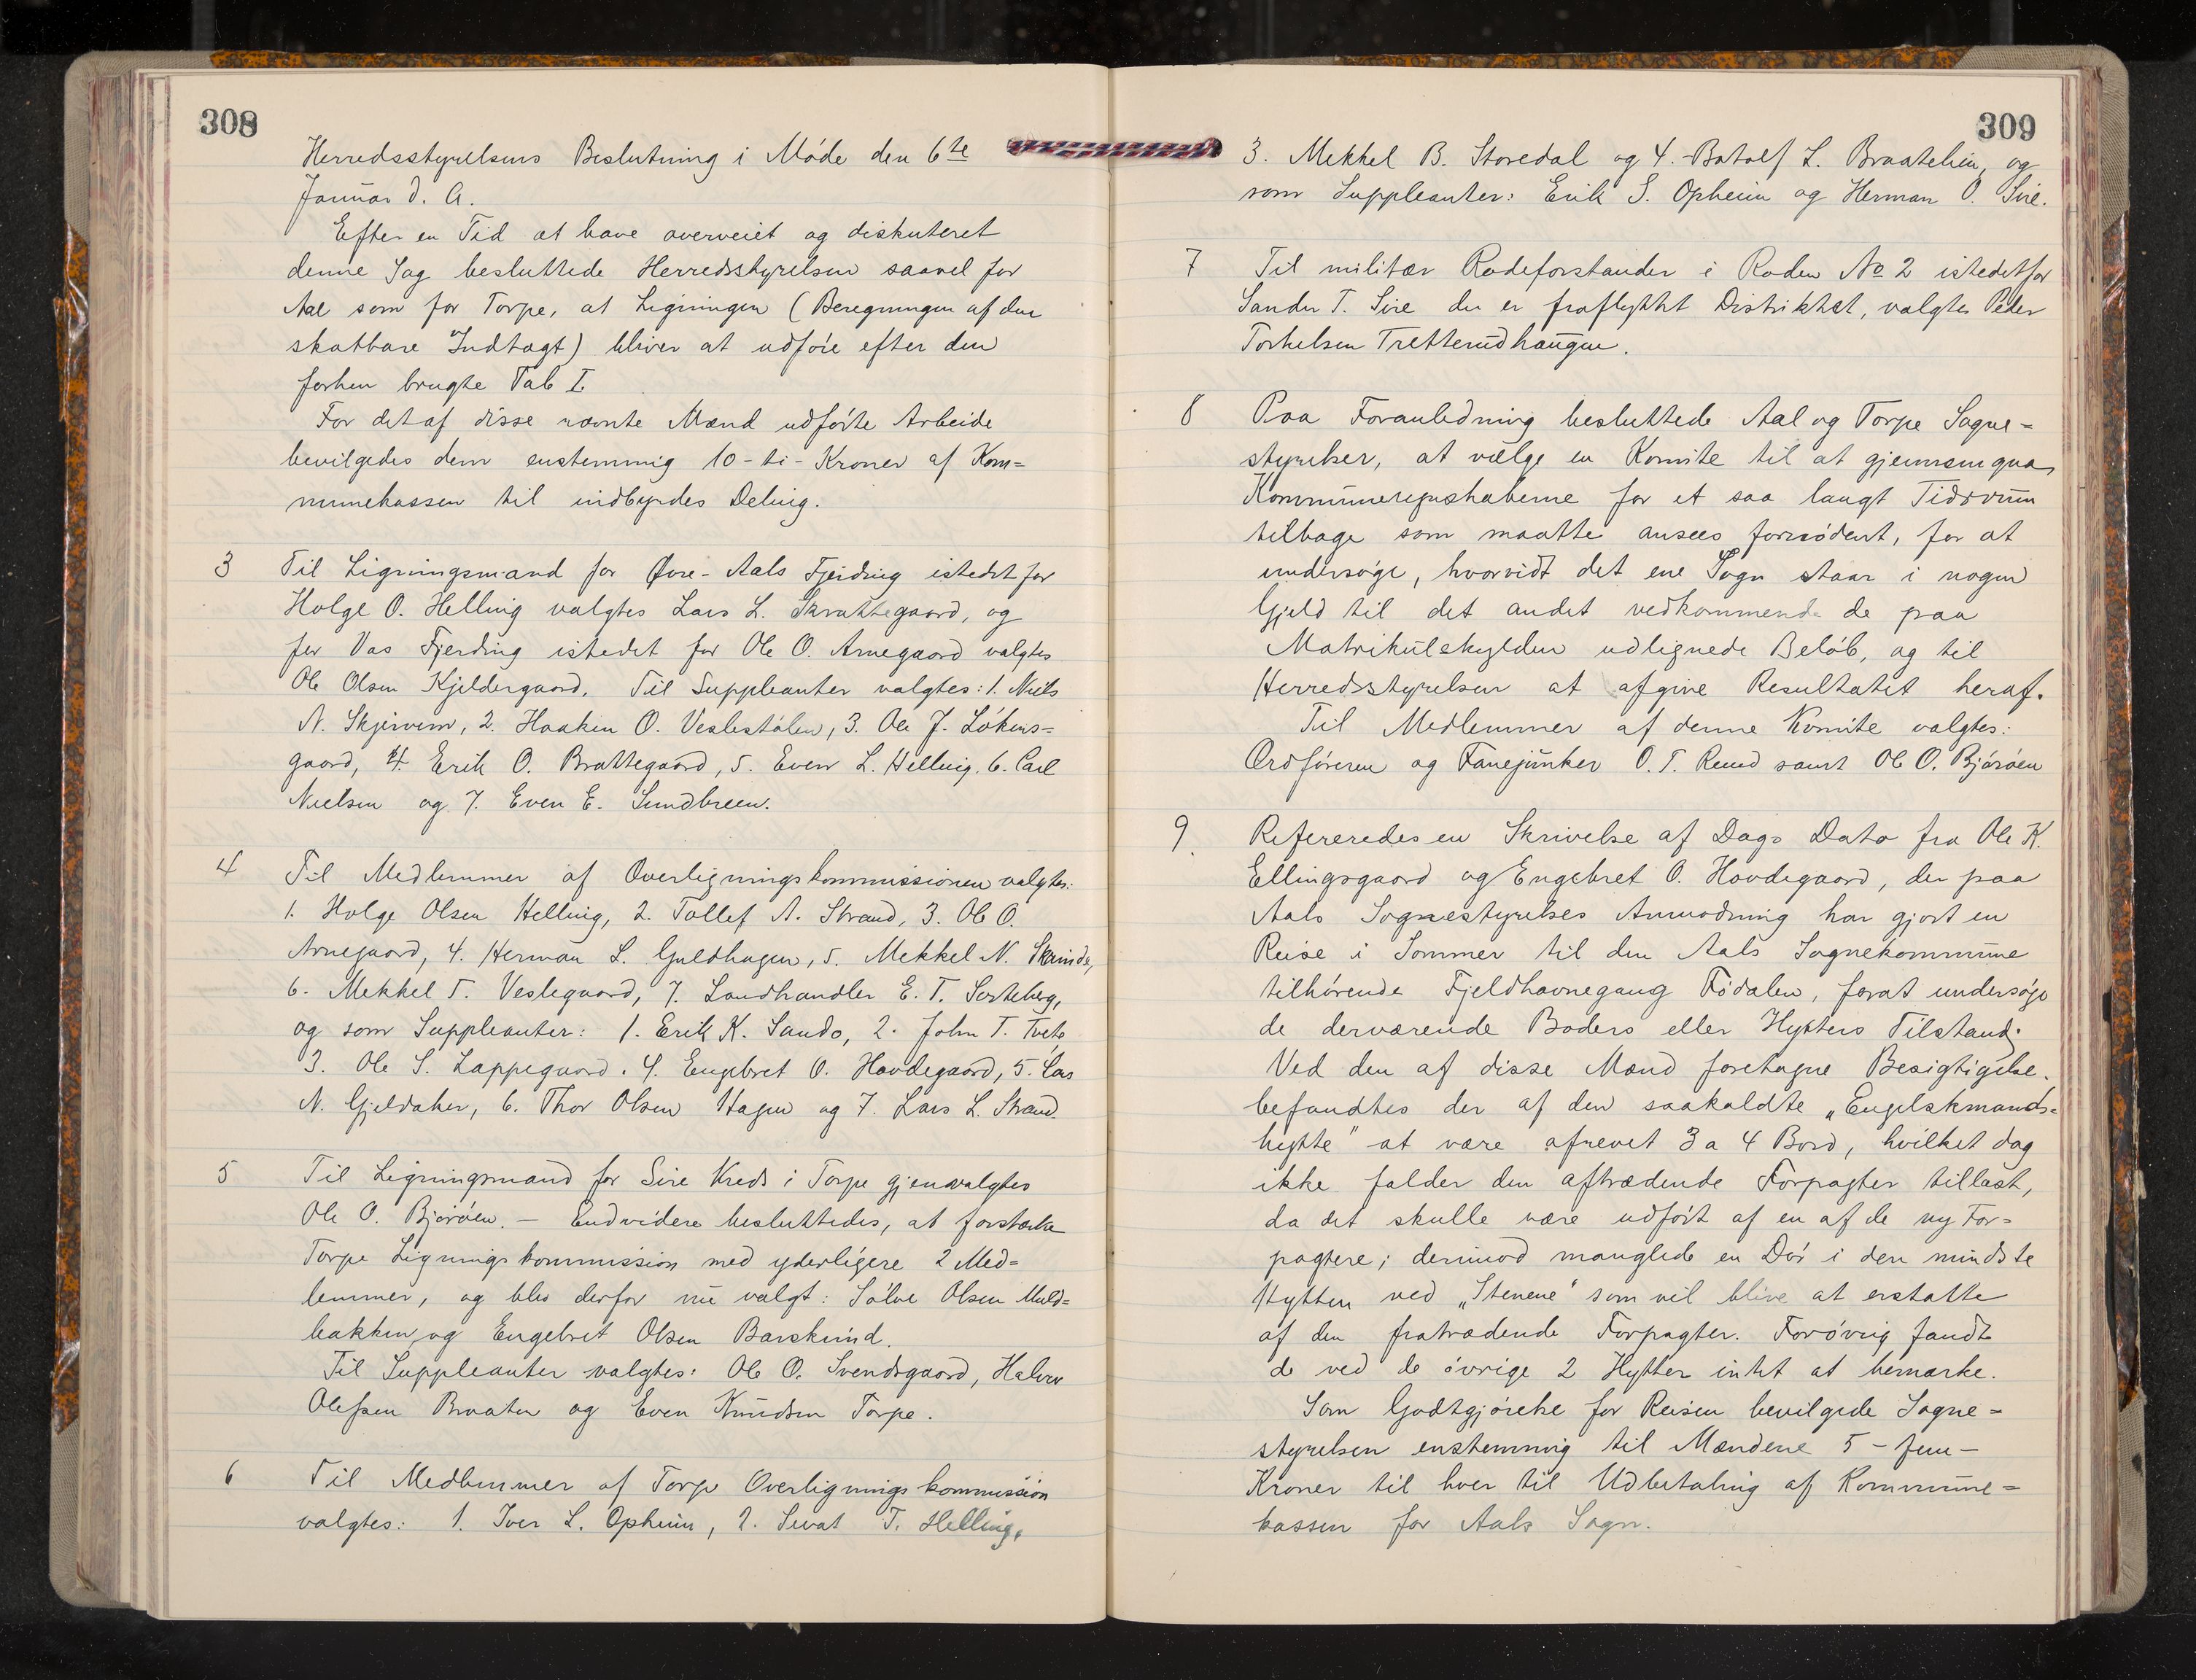 308
Herredsstyrelsens Beslutning i Møde den 6te
Januar d. A.
Efter en Tid at have overveiet og diskuteret
denne Sag besluttede Herredsstyrelsen saavel for
Aal som for Torpe, at Ligningen (Beregningen af den
skatbare Indtægt) bliver at udføre efter den
forhen brugte Tab I
For det af disse nævnte Mænd udførte Arbeide
bevilgedes dem enstemmig 10 - ti - Kroner af Kom=
munekassen til indbyrdes Deling.
3 Til Ligningsmand for Øvre - Aals Fjerding istedet for
Holge O. Helling valgtes Lars L. Skrattegaard, og
for Vas Fjerding istedet for Ole O. Arnegaard valgtes
Ole Olsen Kjeldergaard. Til Suppleanter valgtes: 1. Niels
N. Skjervem, 2. Haaken O. Veslestølen, 3. Ole J. Løkens=
gaard, 4. Erik O. Brattegaard, 5. Even L. Helling. 6. Carl
Nielsen og 7. Even E. Sundbreen.
4 Til Medlemmer af Overligningskommissionen valgtes:
1. Holge Olsen Helling, 2. Tollef A. Strand, 3. Ole O.
Arnegaard, 4. Herman L. Guldhagen, 5. Mekkel N. Skrinde,
6. Mekkel T. Veslegaard, 7. Landhandler E. T. Sorteberg,
og som Suppleanter: 1. Erik K. Sando, 2. John T. Tveto
3. Ole S. Lappegaard. 4. Engebret O. Hovdegaard, 5. Lars
N. Gjeldaker, 6. Thor Olsen Hagen og 7. Lars L. Strand.
5 Til Ligningsmand for Sire Kreds i Torpe gjenvalgtes
Ole O. Bjørøen. — Endvidere besluttedes, at forstærke
Torpe Ligningskommission med yderligere 2 Med=
lemmer, og blev derfor nu valgt: Sølve Olsen Muld=
bakken og Engebret Olsen Barskrind.
Til Suppleanter valgtes: Ole O. Svendsgaard, Halvor
Olessen Braaten og Even Knudsen Torpe.
6 Til Medlemmer af Torpe Overligningskommission
valgtes: 1. Iver L. Opheim, 2. Sevat T. Helling,
309
3. Mekkel B. Storedal og 4. Botolf L. Braatelien, og
som Suppleanter: Erik S. Opheim og Herman O. Sire.
7 Til militær Rodeforstander i Roden No 2 istedetfor
Sander T. Sire der er fraflyttet Distriktet, valgtes Peder
Torkelsen Tretterudhaugen.
8 Paa Foranledning besluttede Aal og Torpe Sogne=
styrelser, at vælge en Komite til at gjennemgaa
Kommuneregnskaberne for et saa langt Tidsrum
tilbage som maatte ansees fornødent, for at
undersøge, hvorvidt det ene Sogn staar i nogen
Gjeld til det andet vedkommende de paa
Matrikulskylden udlignede Beløb, og til
Herredsstyrelsen at afgive Resultatet heraf.
Til Medlemmer af denne Komite valgtes:
Ordføreren og Fanejunker O. T. Ruud samt Ole O. Bjørøen
9. Refereredes en Skrivelse af Dags Dato fra Ole K.
Ellingsgaard og Engebret O. Hovdegaard, der paa
Aals Sognestyrelses Anmodning har gjort en
Reise i Sommer til den Aals Sognekommune
tilhørende Fjeldhavnegang Fødalen, forat undersøge
de derværende Boders eller Hytters Tilstand.
Ved den af disse Mænd foretagne Besigtigelse.
befandtes der af den saakaldte „Engelskmands=
hytte" at være afrevet 3 a 4 Bord, hvilket dog
ikke falder den aftrædende Forpagter tillast,
da det skulle være udført af en af de ny For=
pagtere; derimod manglede en Dør i den mindste
Hytten ved „Stenene" som vil blive at erstatte
af den fratrædende Forpagter. Forøvrig fandt
de ved de øvrige 2 Hytter intet at bemærke.
Som Godtgjørelse for Reisen bevilgede Sogne=
styrelsen enstemmig til Mændene 5 - fem -
Kroner til hver til Udbetaling af Kommune=
kassen for Aals Sogn.